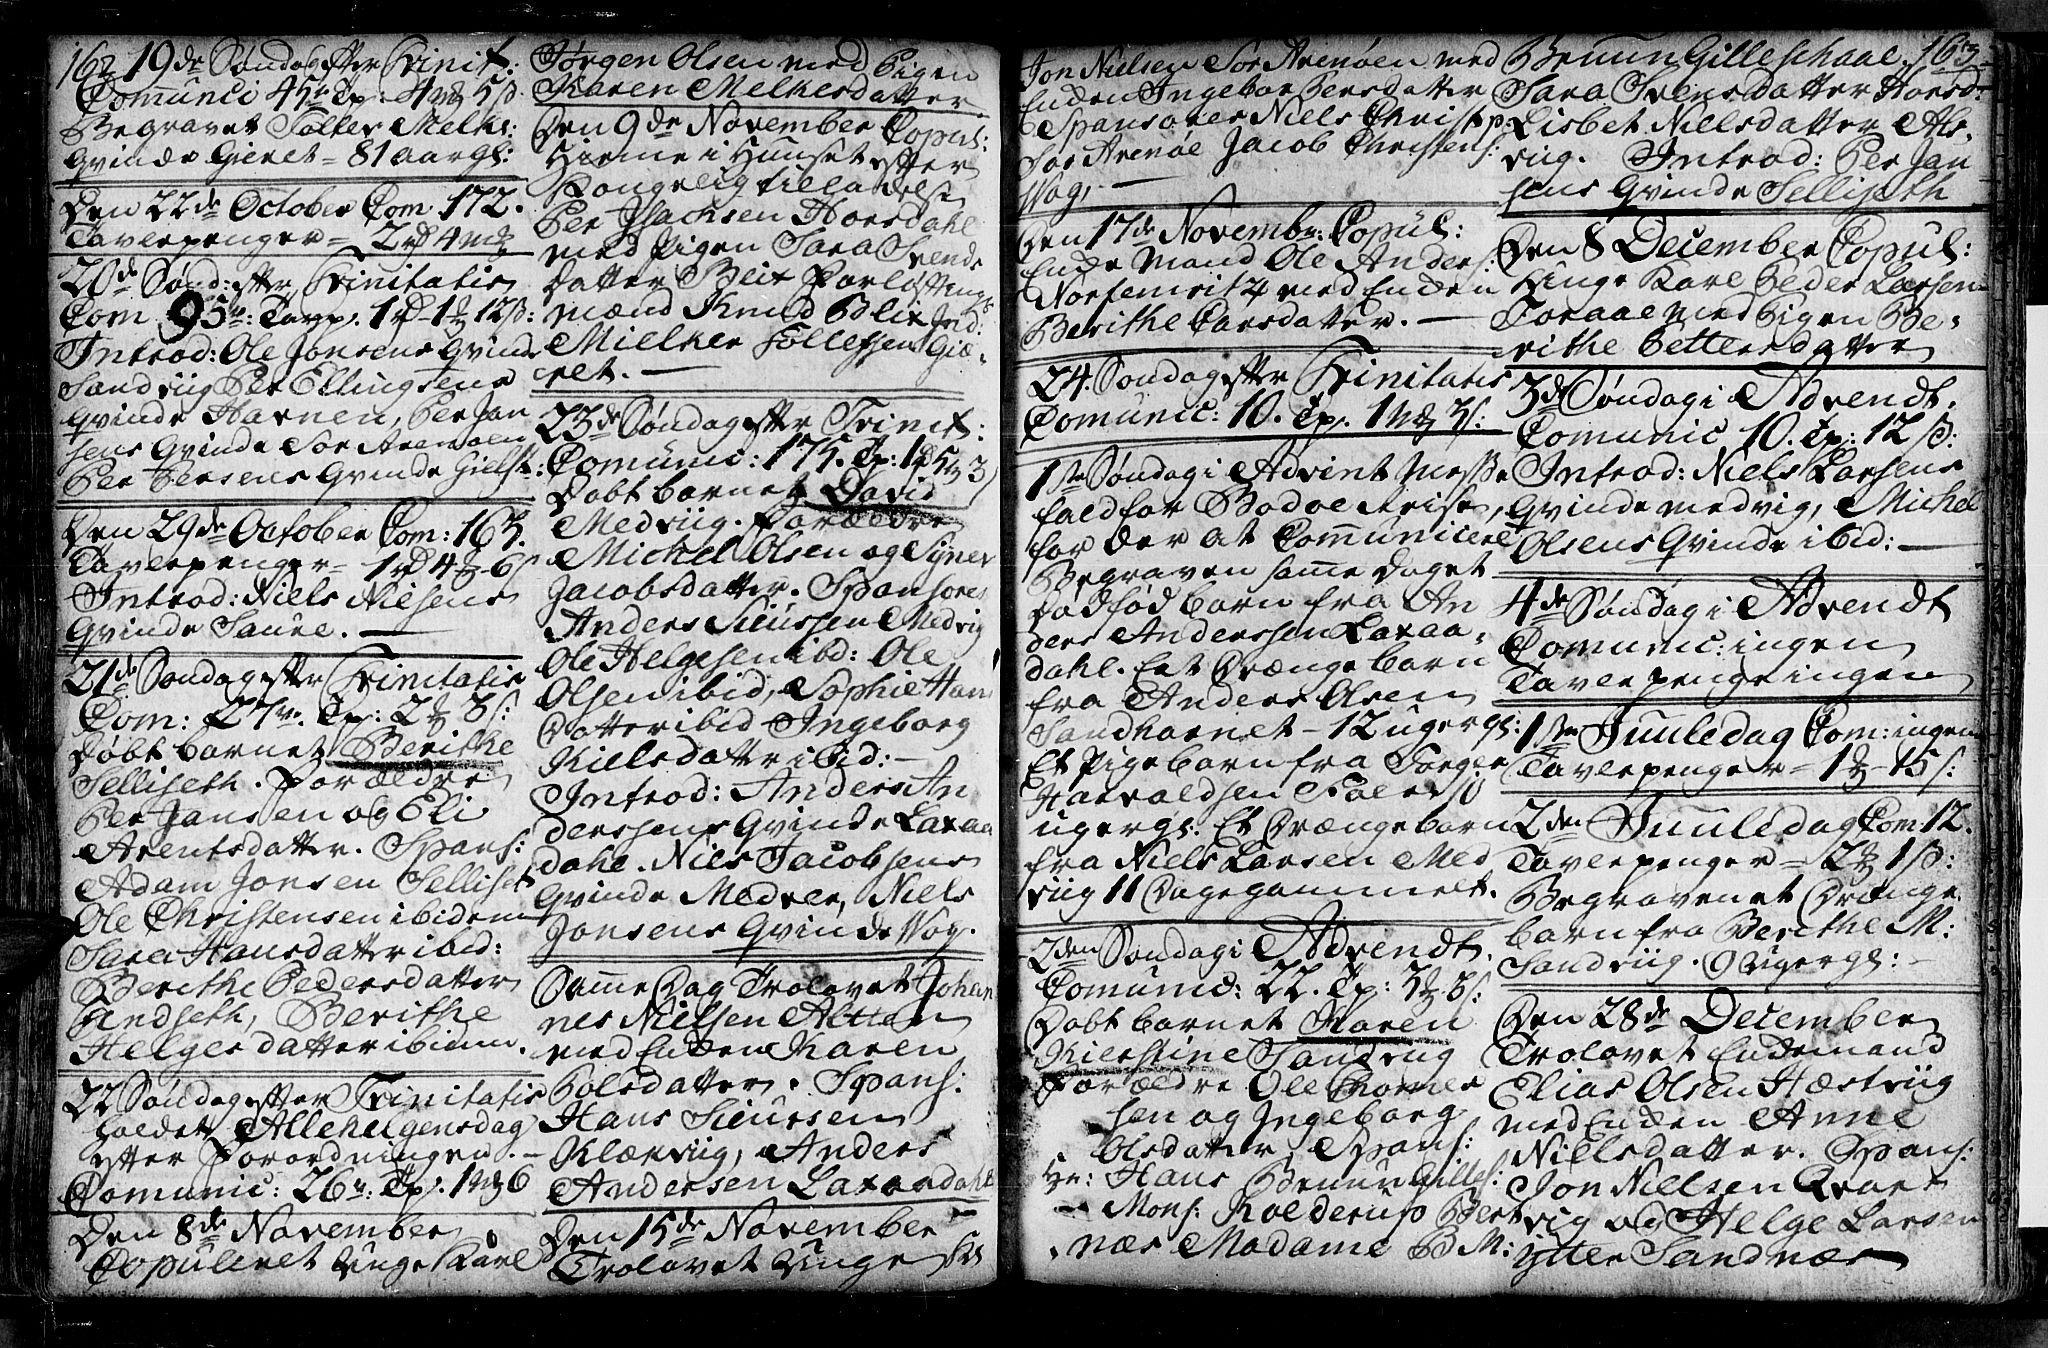 162 19de Søndag efter Trinit:
Comunic 45 Tp: 4 ꝳ 5 ß.
Begravet Folker Melks:
Qvinde Gieret = 81 aar gl:
Den 22de October Com. 172.
Taverpenger = 2 rd 4 mꝳ
20de Sønd: efter Trinitatis
Com 95 Tavp. 1 rd 1 ꝳ 12 ß.
Introd: Ole Jonsens Qvinde
Sandviig Per Ellingsens
Qvinde Harnen, Per Jan
sens Qvinde Sør Arenøen
Per Persens Qvinde
Den 29de October Com: 163.
Taverpenger = 1 rd 4 ꝳ 6 ß
Introd: Niels Nielsens
Qvinde Saure.
21de Søndag efter Trinitatis
Com: 27 Tp: 2 ꝳ 8 ß:
Døbt barnet Berithe
Selliseth. Forældre
Per Jansen og Eli
Arentsdatter. Spans:
Adam Jonsen Selliset
Ole Christensen ibidem
Sara Hansdatter ibid:
Berithe Pedersdatter
Berithe
Helgesdatter ibidem.
22 Søndag efter Trinitatis
holdet Allehelgensdag
efter Forordningen.
Comunic: 26 Tp. 1 mꝳ 6
Den 8de November
Copuleret Unge Karl
Jørgen Olsen med Pigen
Karen Melkesdatter
Den 9de November Copul:
Hieme i Huuset efter
Kongelig tilladelse
Per Isachsen Horsdahl
med Pigen Sara Svends
datter Beix Forløftnings
mænd Knud Blix Ind:
Mielker Follessen Giæ-
ret.
23de Søndag efter Trinit:
Comunic: 175. Tp: 1 rd 5 ꝳ 3 ß
Døbt barnet David
Medviig. Forældre
Michel Olsen og Synev
Jacobsdatter. Spansores
Anders Siurssen Medvig
Ole Helgesen ibd: Ole
Olsen ibid, Sophie Hans
Datter ibid Ingeborg
Kielsdatter ibid:
Introd: Anders An
derssens Qvinde Laxaa
dahl. Niels Jacobsens
Qvinde Niels
Jonsens Qvinde Vog.
Samme Dag Trolovet Johan
nes Nielsen
med Enden Karen
Polsdatter. Spans:
Hans Siurssen
Anders
Andersen Laxaadahl
Den 15de November
Trolovet Unge
Jon Nielsen Sør Arenøen med
Enden Ingebor Persdatter
Spansores Niels Christp
Sør Arenøe Jacob Christens:
Vog,
Den 17de Novembr: Copul:
Ende Mand Ole Anders:
med Enden
Berithe Larsdatter.
24. Søndag efter Trinitatis
Comunic: 10. Tp. 1 mꝳ 3 ß.
1ste Søndag i Advent Messe
fald for Bodøe Reise,
for der at Communicere
Begraven samme Dag et
dødfød barn fra An
ders Anderssen Laxaa-
dahl. Eet Drænge barn
fra Anders Olsen
Sandhornet - 12 uger gl:
Et Pige barn fra Jørgen
Harraldsen
uger gl: Et Drænge barn
fra Niels Larsen Med
viig 11 Dage gammelt.
2den Søndag i Advendt.
Comunic: 22. Tp: 3 ꝳ 8 ß:
Døbt barnet Karen
Kierstine Sandvig
Forældre Ole Thomes
sen og Ingeborg
Olsdatter. Spans:
Hr: Hans Bruun Gilles:
Mons: Kolderup Bert
næs Madame B M:
Bruun Gilleschaal, 163
Sara Svensdatter Horsd:
Lisbet Nielsdatter Als-
viig. Introd: Per Jan
sens Qvinde Selliseth
Den 8 December Copul:
Unge Karl Peder Larsen
Toraae med Pigen Be-
rithe Pettersdatter
3de Søndag i Advendt.
Comunic 10. Tp: 12 ß:
Introd: Niels Larsens
Qvinde Medvig, Michel
Olsens Qvinde ibid:
4de Søndag i Advendt
Comunic: ingen
Taverpenge ingen
1ste Juuledag Com: ingen
Taverpenger = 1 ꝳ 15 ß:
2den Juuledag Com 12.
Taverpenger = 2 ꝳ 1 ß:
Begraven et Drænge
barn fra Berithe M:
Sandviig. 9 Uger gl:
Den 28de December
Trolovet Endemand
Elias Olsen Hæstviig
med Enden Anne
Nielsdatter. Spans:
Jon Nielsen Qvar
vig og Helge Larsen
Ytter Sandnæs